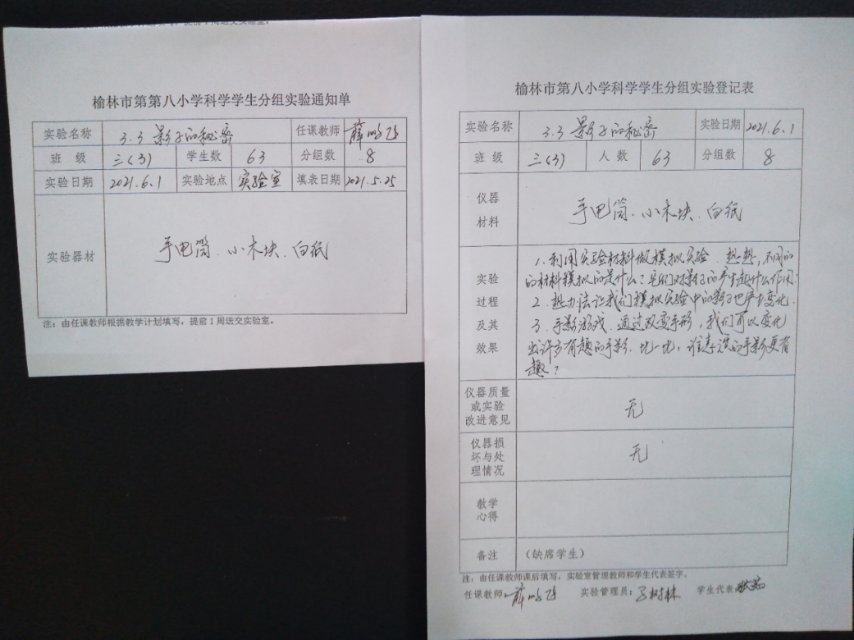 榆林市第第八小学科学学生分组实验通知单
实验名称 3.3 影子的秘密 任课教师
班 级 三(3) 学生数 63 分组数 8
实验日期 2021.6.1 实验地点 实验室 填表日期 2021.5.25
实验器材 手电筒、小木块、白纸
注：由任课教师根据教学计划填写，提前1周送交实验室。
榆林市第八小学科学学生分组实验登记表
实验名称 3.3 影子的秘密 实验日期 2021.6.1
班 级 三(3) 人 数 63 分组数 8
仪器
材料
手电筒、小木块、白纸
实验
过程
及其
效果
1. 利用实验材料做模拟实验，想想，不同的
的材料模拟的是什么？它们对影子的产生起什么作用？
2. 想办法让我们模拟实验中的影子也产生变化.
3. 手影游戏，通过改变手形，我们可以变化
出许多有趣的手影。比一比，谁表演的手影更有
趣？
仪器质量
或实验
改进意见
无
仪器损
坏与处
理情况
无
教学
心得
备注 （缺席学生）
注：由任课教师课后填写，实验室管理教师和学生代表签字。
任课教师： 实验管理员： 学生代表